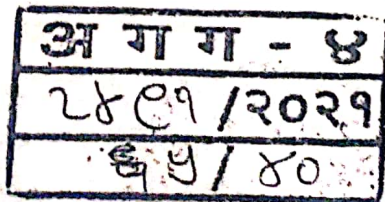 अ ग ग - ४
२४९१/२०२१
३५/४०